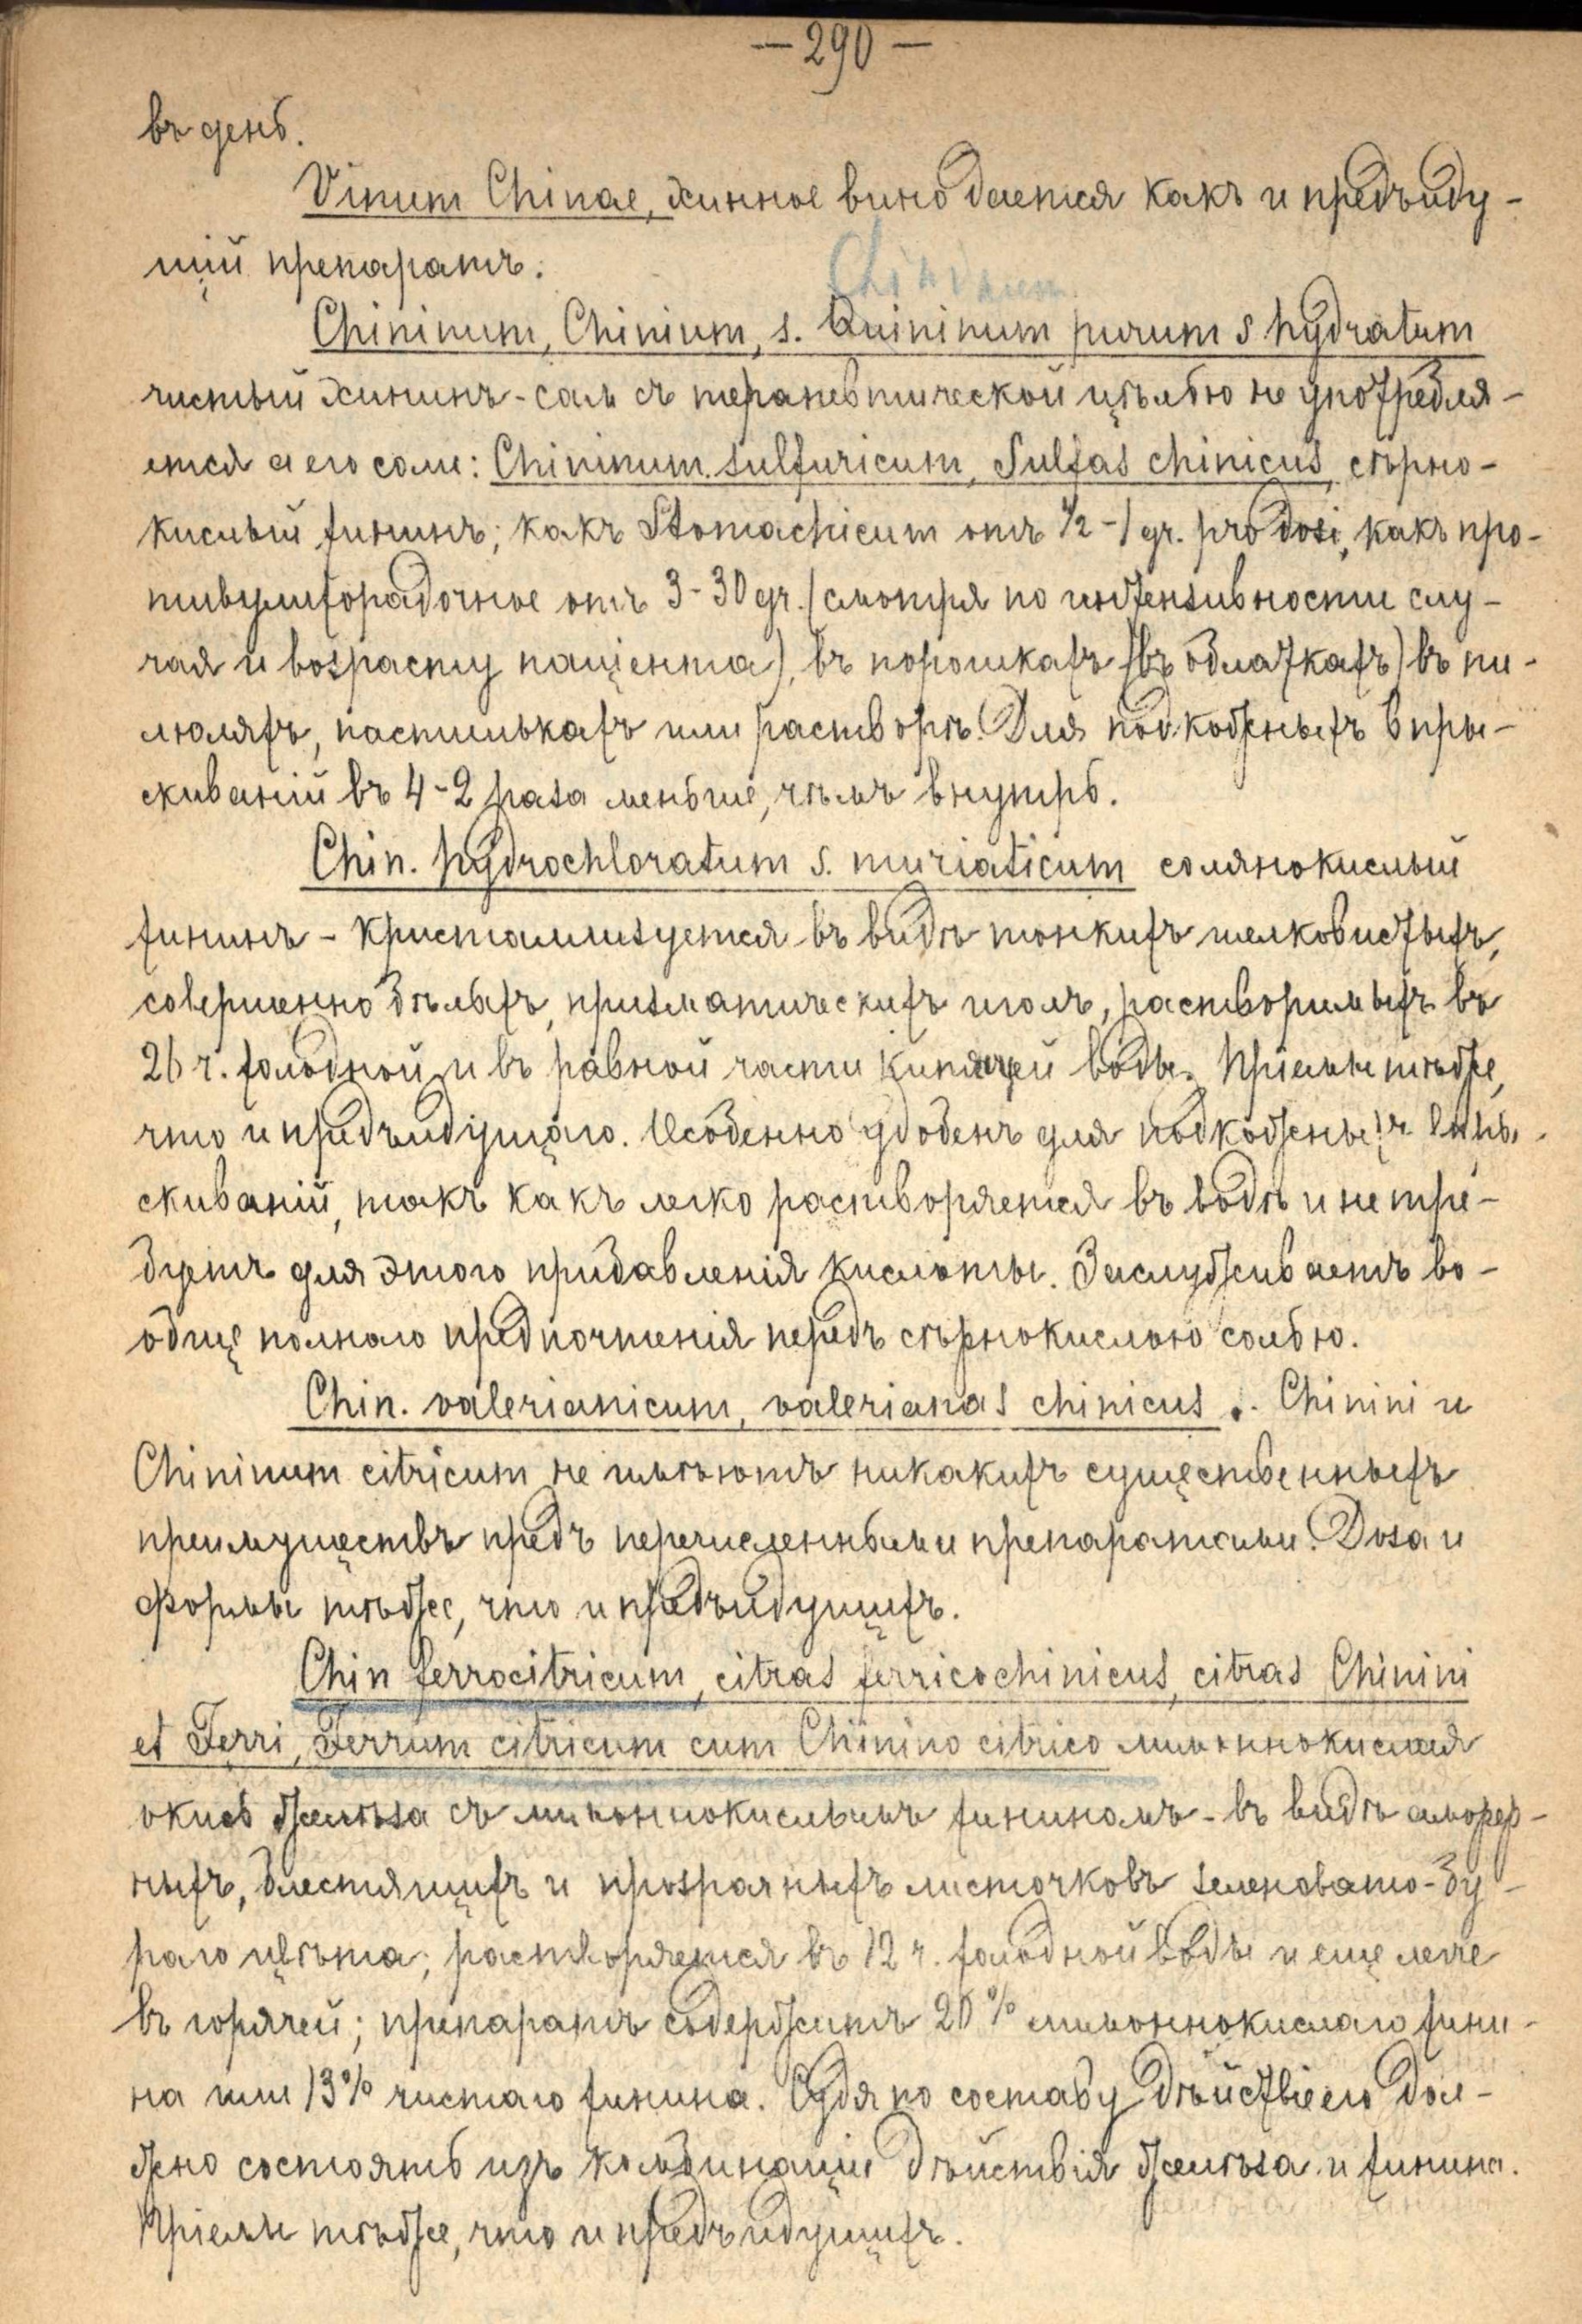 — 290 —
въ день.
Vinum Chinae, хинное вино дается какъ и предъиду-
щій препаратъ.
Chininum
Chininum, Chinium, s. Quininum purum s hydratum
чистый хининъ - самъ съ терапевтической цѣлью не употребля-
ется а его соли: Chininum sulfuricum, Sulfas chinicus, сѣрно-
кислый хининъ; какъ Stomachicum отъ ½-1 gr. pro dosi, какъ про-
тивулихорадочное отъ 3-30 gr. (смотря по интенsивности слу-
чая и воsрасту паціента), въ порошкахъ (въ облаткахъ) въ пи-
люляхъ, пастилькахъ или растворѣ. Для подкожныхъ впры-
скиваній въ 4-2 раsа меньше, чѣмъ внутрь.
Chin. hydrochloratum s. muriaticum солянокислый
хининъ - кристаллиsуется въ видѣ тонкихъ шелковистыхъ,
совершенно бѣлыхъ, приsматическихъ иголъ, растворимыхъ въ
26 ч. холодной и въ равной части кипячей воды. Пріемы тѣже,
что и предъидущаго. Особенно удобенъ для подкожныхъ впры-
скиваній, такъ какъ легко растворяется въ водѣ и не тре-
буетъ для этого прибавленія кислоты. Заслуживаетъ во-
обще полнаго предпочтенія передъ сѣрнокислою солью.
Chin. valerianicum, valerianas chinicus . Chinini и
Chininum citricum не имѣютъ никакихъ существенныхъ
преимуществъ предъ перечисленными препаратами. Доsа и
формы тѣже, что и предъидущихъ.
Chin ferrocitricum, citras ferricochinicus, citras Chinini
et Ferri, Ferrum citricum cum Chinino citrico лимоннокислая
окись желѣsа съ лимоннокислымъ хининомъ - въ видѣ
ныхъ, блестящихъ и проsрачныхъ листочковъ sеленовато-бу-
раго цвѣта; растворяется въ 12 ч. холодной воды и еще легче
въ горячей; препаратъ содержитъ 20% лимоннокислаго хини-
на или 13% чистаго хинина. Судя по составу дѣйствіе его дол-
жно состоять изъ комбинаціи дѣйствія желѣsа и хинина.
Пріемы тѣже, что и предъидущихъ.